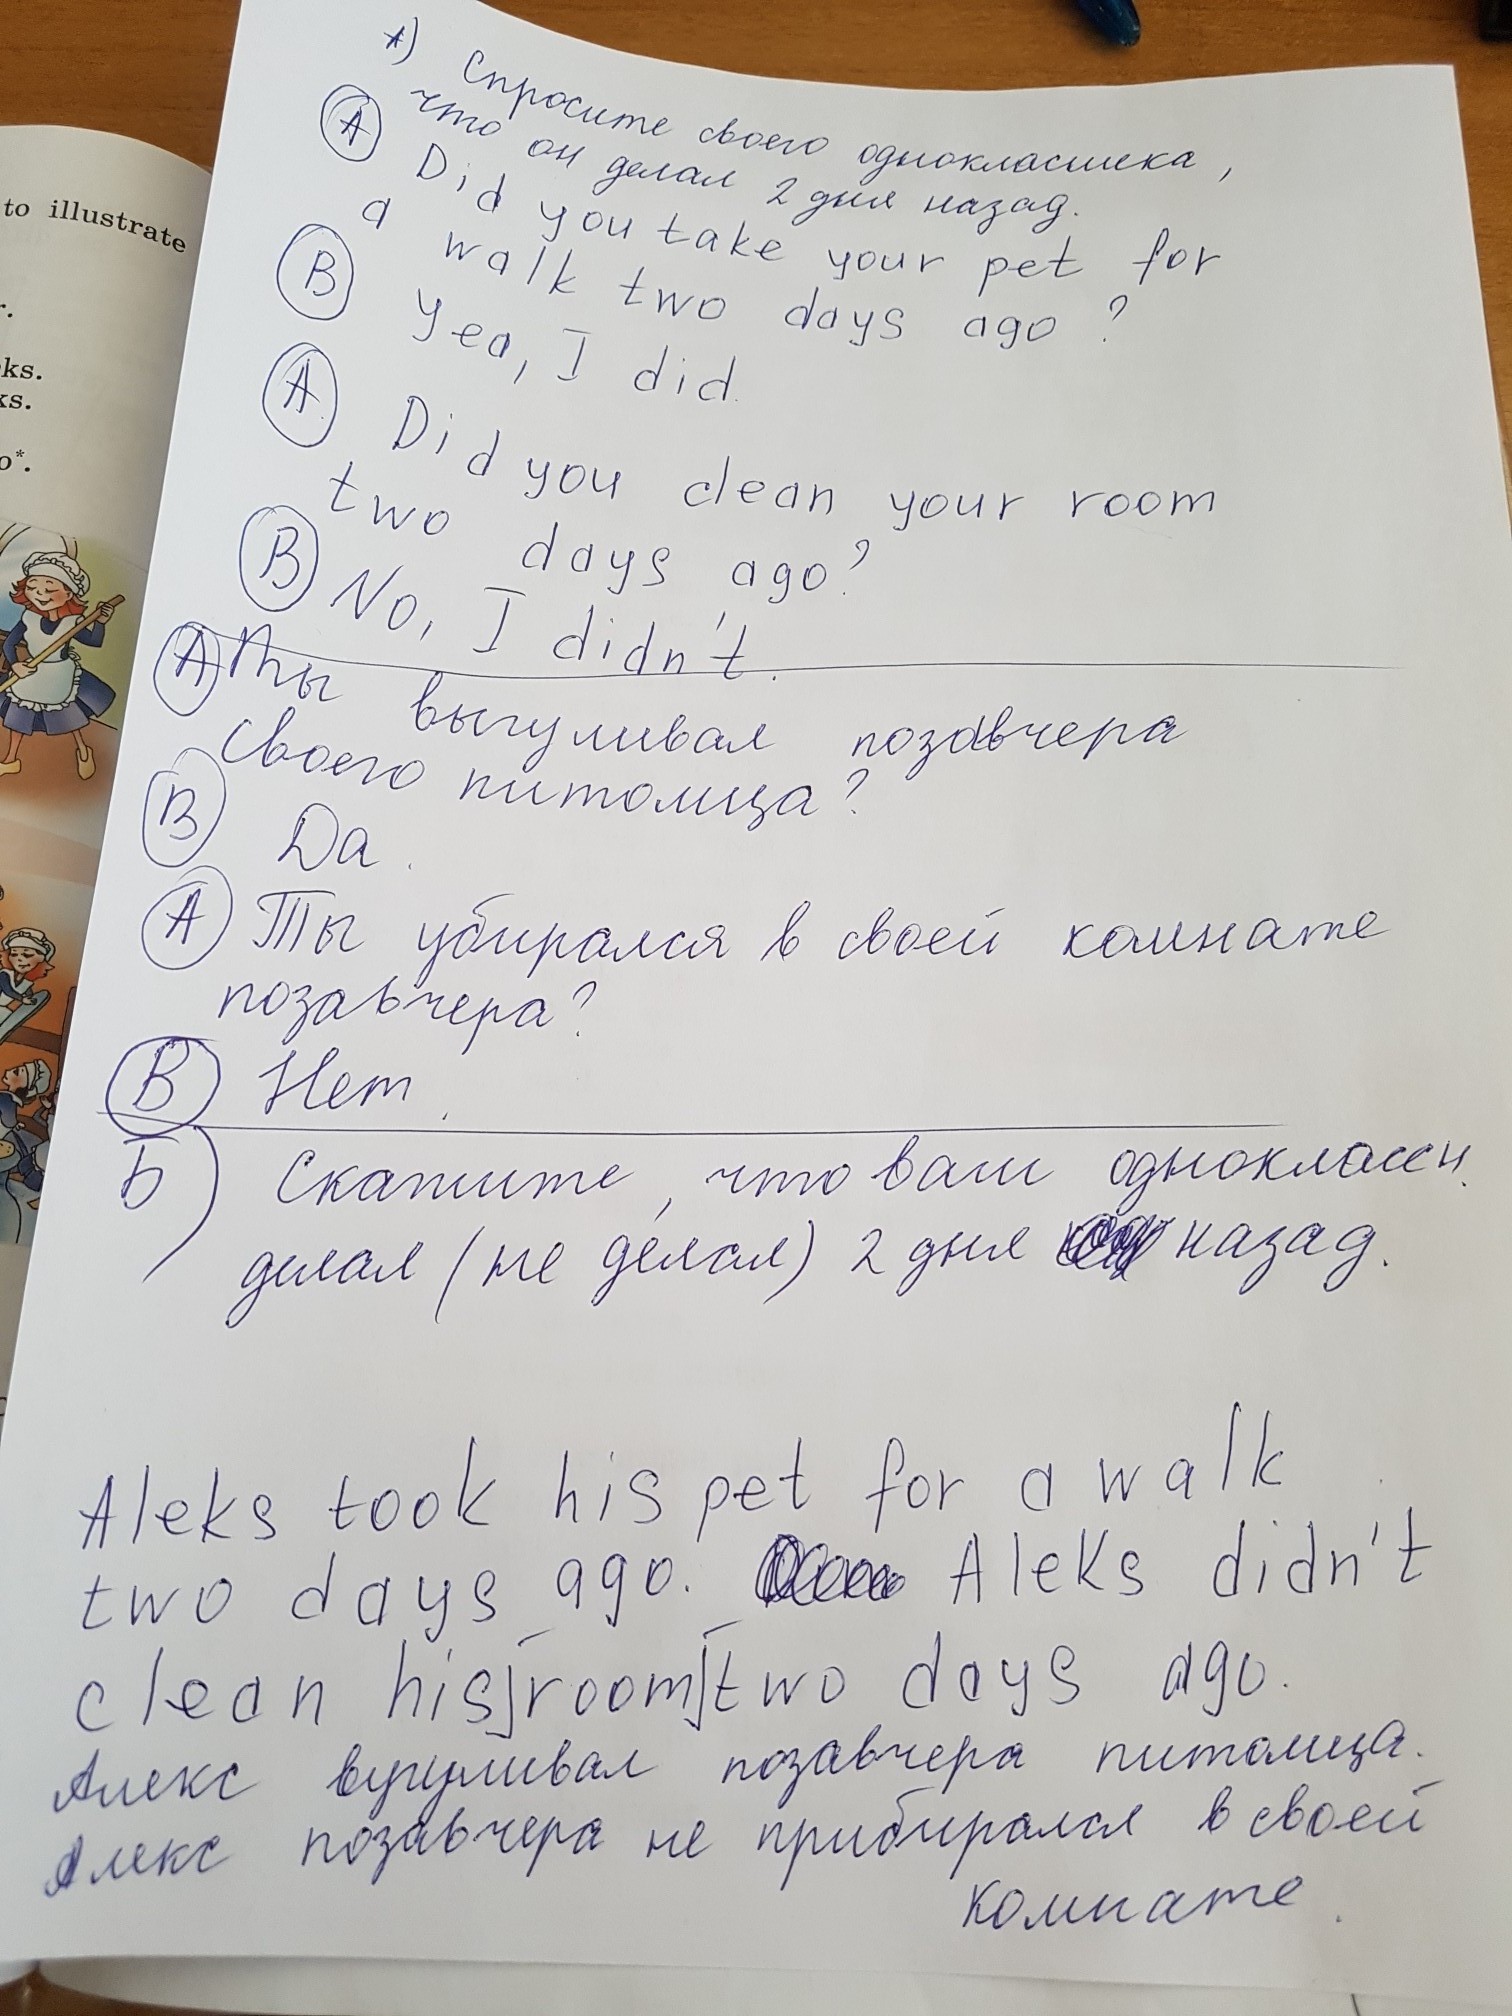 to illustrate
r.
eks.
ks.
o*.
А) Спросите своего одноклассика,
что он делал 2 дня назад.
А Did you take your pet for
a walk two days ago?
B Yea, I did.
А Did you clean your room
two days ago?
B No, I didn't.
А Ты выгуливал позавчера
своего питомица?
В Да.
А Ты убирался в своей комнате
позавчера?
В Нет.
Б) Скажите, что ваш одноклассн.
делал (не делал) 2 дня назад.
Aleks took his pet for a walk
two days ago. Aleks didn't
clean his room two days ago.
Алекс вугуливал позавчера питомица.
Алекс позавчера не прибирался в своей
комнате.